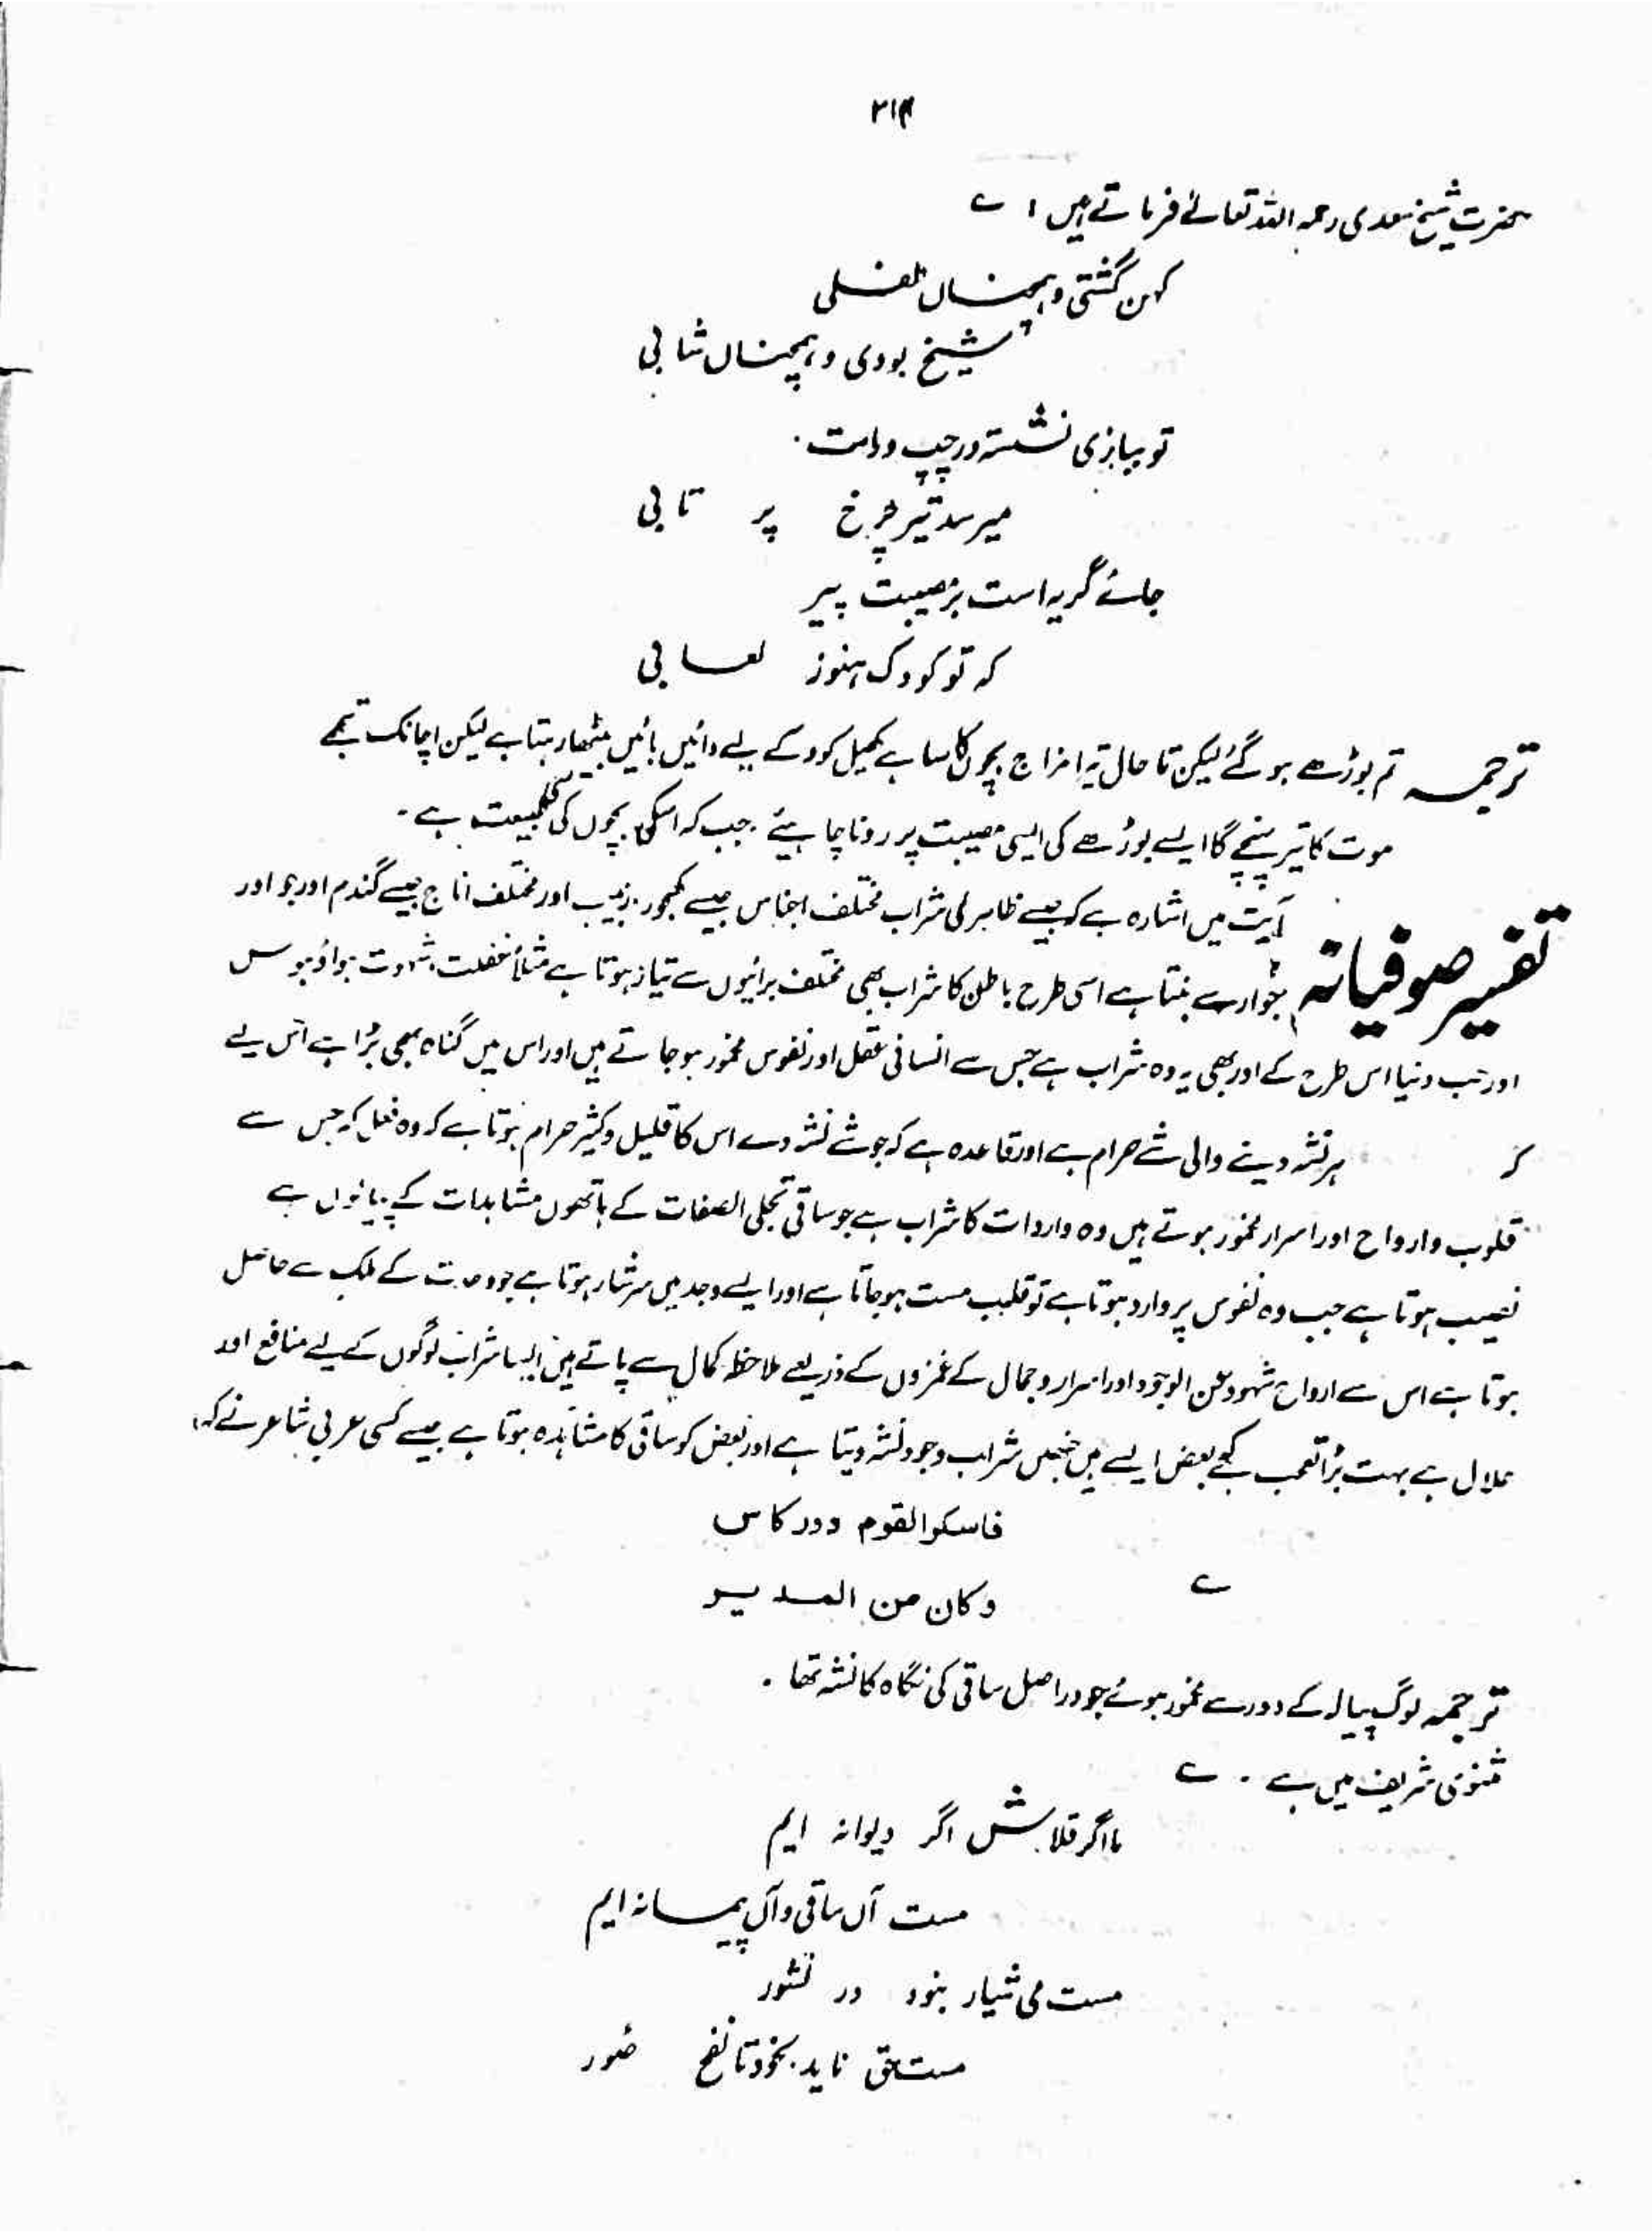 ۲۱۴
حضرت شیخ سعدی رحمہ اللہ تعالےٰ فرماتے ہیں ؎
کہن گشتی و ہمچناں طفلی
شیخ بودی و ہمچناں شابی
تو ببازی نشستہ در چپ وراست
میرسد تیر چرخ پر تابی
جائے گریہ است بر مصیبت پیر
کہ تو کودک ہنوز لعابی
ترجمہ تم بوڑھے ہو گئے لیکن تا حال تیرا مزاج بچوں کا سا ہے کھیل کود کے لیے دائیں بائیں بیٹھا رہتا ہے لیکن اچانک تجھے
موت کا تیر پہنچے گا ایسے بوڑھے کی ایسی مصیبت پر رونا چاہیئے۔ جب کہ اسکی بچوں کی سی طبیعت ہے۔
تفسیر صوفیانہ آیت میں اشارہ ہے کہ جیسے ظاہر کی شراب مختلف اجناس جیسے کھجور، زبیب اور مختلف اناج جیسے گندم اور جو اور
جوار سے بنتا ہے اسی طرح باطن کا شراب بھی مختلف برائیوں سے تیار ہوتا ہے مثلاً غفلت، شہوت ہوا و ہوس
اور حب دنیا اس طرح کے اور بھی یہ وہ شراب ہے جس سے انسانی عقل اور نفوس مخمور ہو جاتے ہیں اور اس میں گناہ بھی بڑا ہے اس لیے
کہ ہر نشہ دینے والی شے حرام ہے اور قاعدہ ہے کہ جو شے نشہ دے اس کا قلیل وکثیر حرام ہوتا ہے کہ وہ فعل کہ جس سے
قلوب وارواح اور اسرار مخمور ہوتے ہیں وہ واردات کا شراب ہے جو ساقی تجلی الصفات کے ہاتھوں مشاہدات کے پیمانوں سے
نصیب ہوتا ہے جب وہ نفوس پر وارد ہوتا ہے تو قلب مست ہو جاتا ہے اور ایسے وجد میں سرشار ہوتا ہے جو وحدت کے ملک سے حاصل
ہوتا ہے اس سے ارواح شہود عن الوجود اور اسرار و جمال کے غمزوں کے ذریعے ملاحظہ کمال سے پاتے ہیں ایسا شراب لوگوں کے لیے منافع اور
حلال ہے بہت بڑا تعجب کیجے بعض ایسے ہیں جنہیں شراب وجود نشہ دیتا ہے اور بعض کو ساقی کا مشاہدہ ہوتا ہے جیسے کسی عربی شاعر نے کہا
فاسکر القوم دور کاس
؎ وکان من المدیر
ترجمہ لوگ پیالہ کے دور سے مخمور ہوئے جو دراصل ساقی کی نگاہ کا نشہ تھا۔
مثنوی شریف میں ہے۔ ؎
ما اگر قلاش اگر دیوانہ ایم
مست آں ساقی وآں پیمانہ ایم
مست می شیار بنود در نشور
مست حق ناید بخود تا نفخ صور